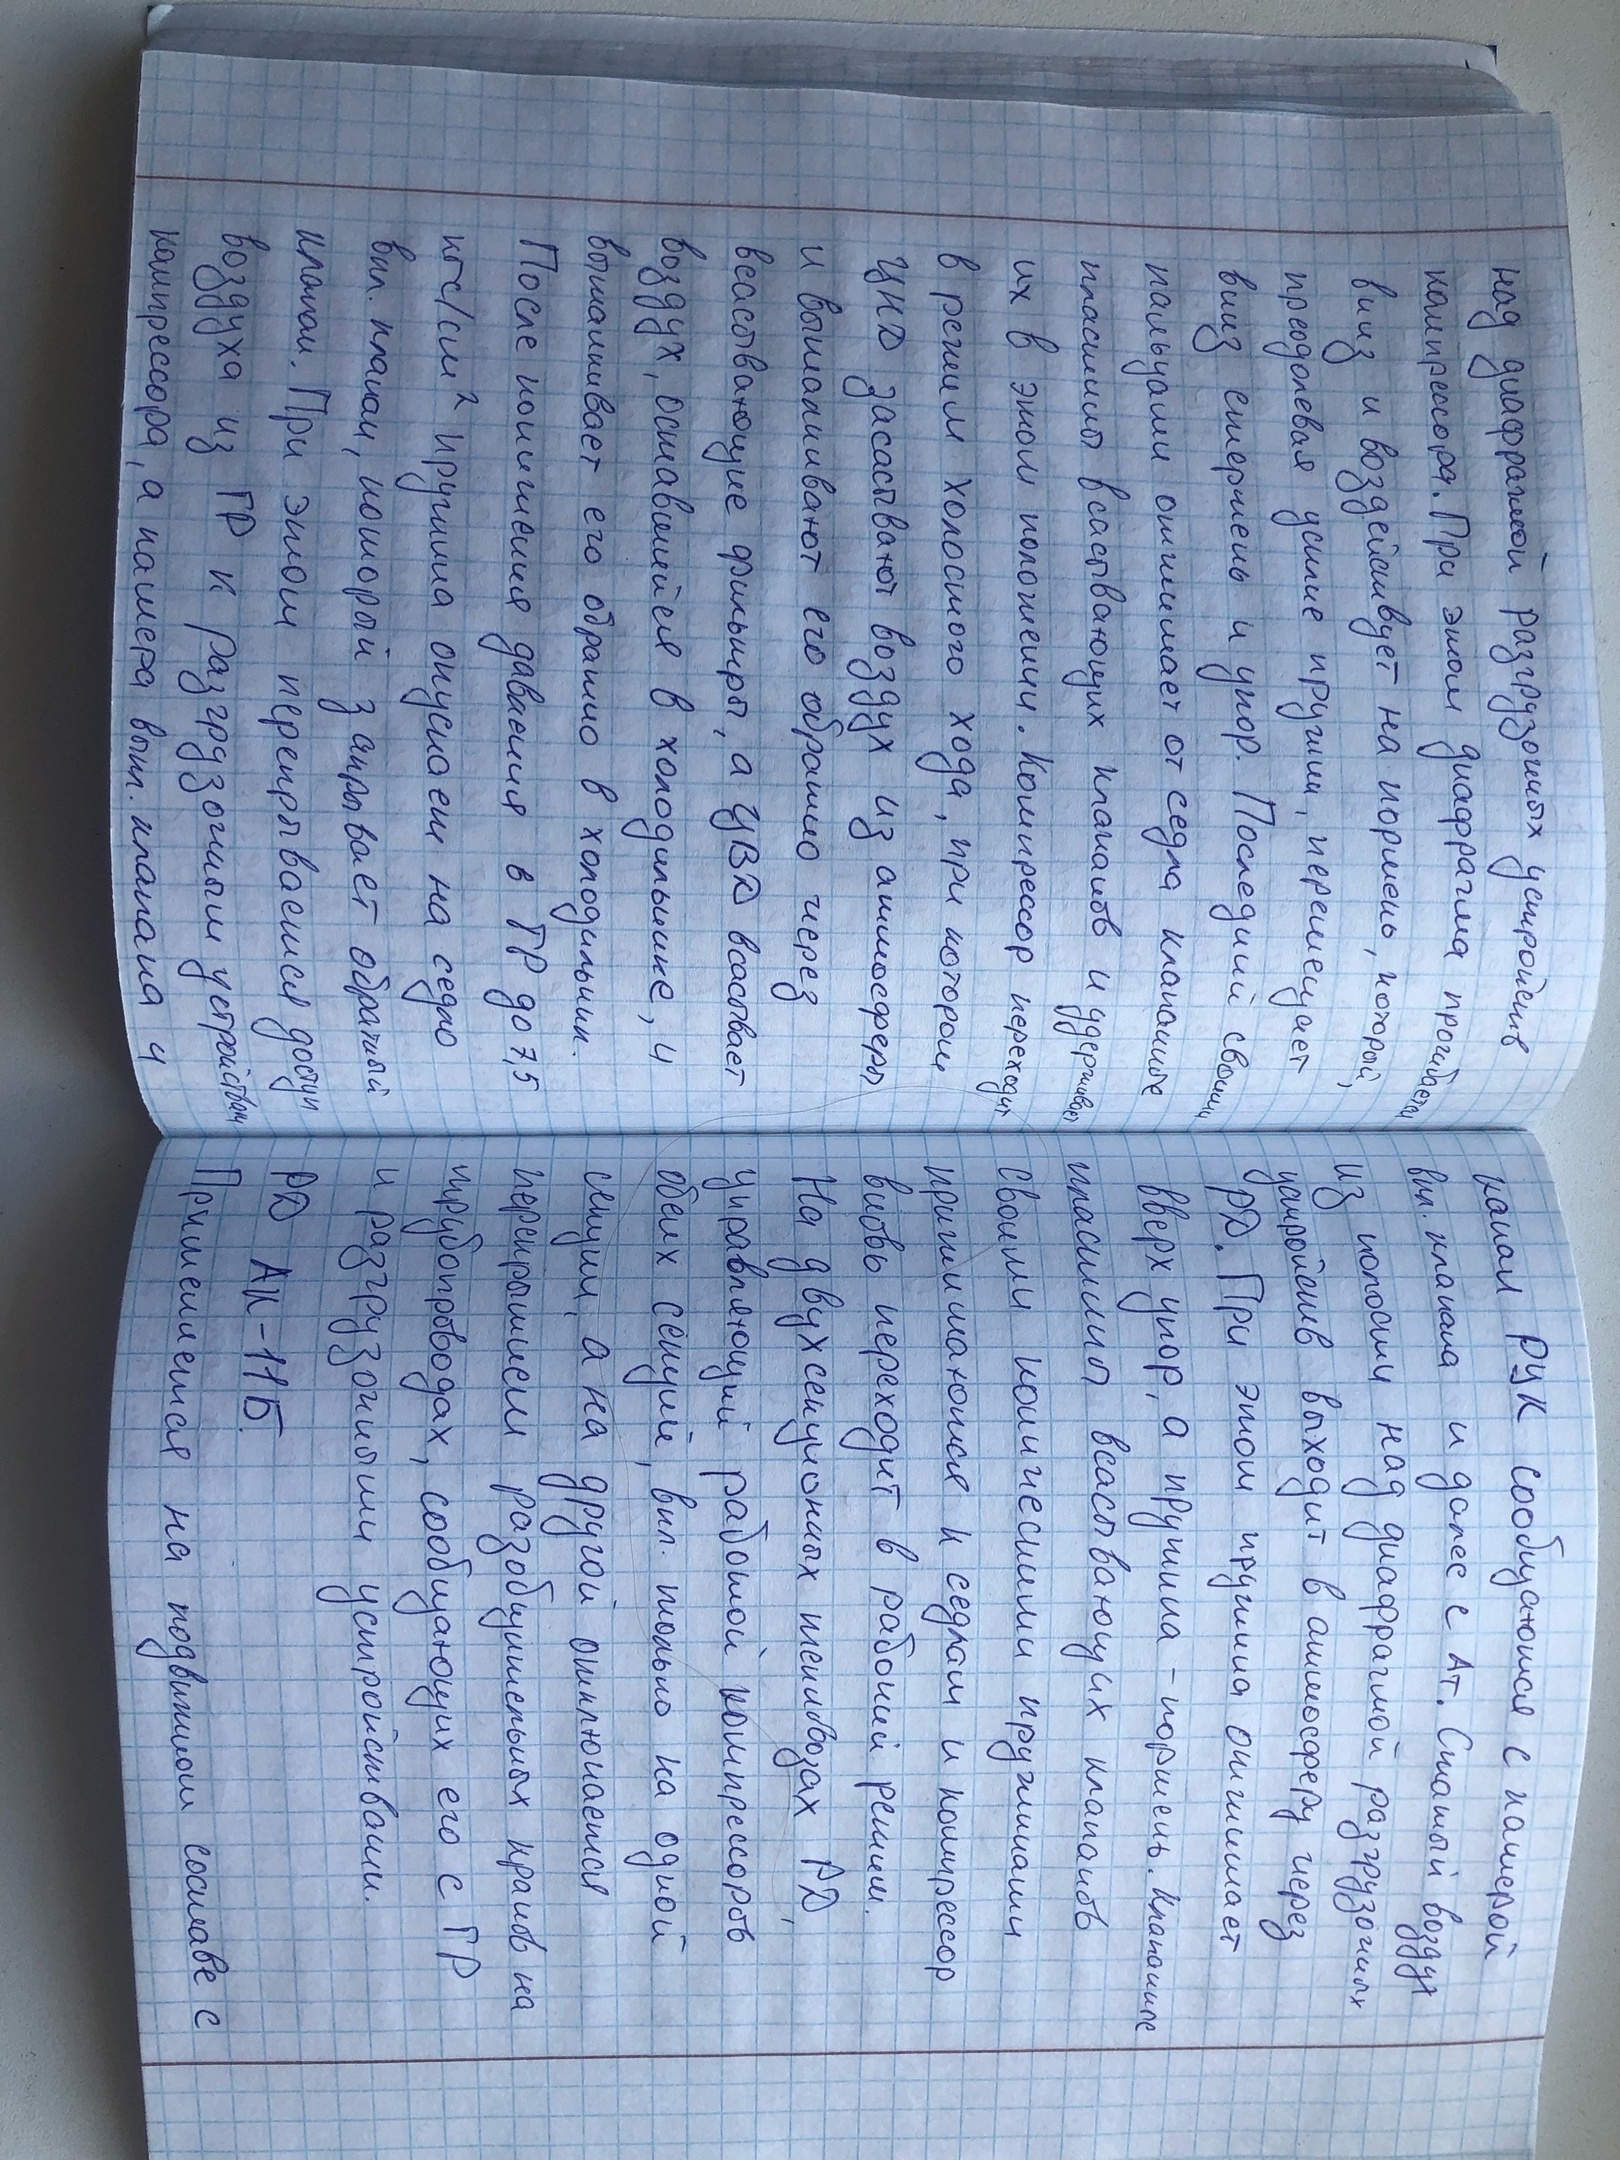 над диафрагмой разгрузочных устройств
компрессора. При этом диафрагма прогибается
вниз и воздействует на поршень, который,
преодолевая усилие пружин, перемещает
вниз стержень и упор. Последний своими
пальцами отжимает от седла клапанные
пластины всасывающих клапанов и удерживает
их в этом положении. Компрессор переходит
в режим холостого хода, при котором
ЦНД засасывают воздух из атмосферы
и выталкивают его обратно через
всасывающие фильтры, а ЦВД всасывает
воздух, оставшийся в холодильнике, и
выталкивает его обратно в холодильник.
После понижения давления в ГР до 7,5
кгс/см² пружина опускаем на седло
вкл. клапан, который закрывает обратный
клапан. При этом перекрывается доступ
воздуха из ГР к разгрузочным устройствам
компрессора, а камера выкл. клапана и
канал РУК сообщаются с камерой
вкл. клапана и далее с Ат. Сжатый воздух
из полости над диафрагмой разгрузочных
устройств выходит в атмосферу через
РД. При этом пружина отжимает
вверх упор, а пружина - поршень. Клапанные
пластины всасывающих клапанов
своими коническими пружинами
прижимаются к седлам и компрессор
вновь переходит в рабочий режим.
На двухсекционных тепловозах РД,
управляющий работой компрессоров
обеих секций, вкл. только на одной
секции, а на другой отключается
перекрытием разобщительных кранов на
трубопроводах, сообщающих его с ГР
и разгрузочными устройствами.
РД АК-11Б.
Применяется на подвижном составе с